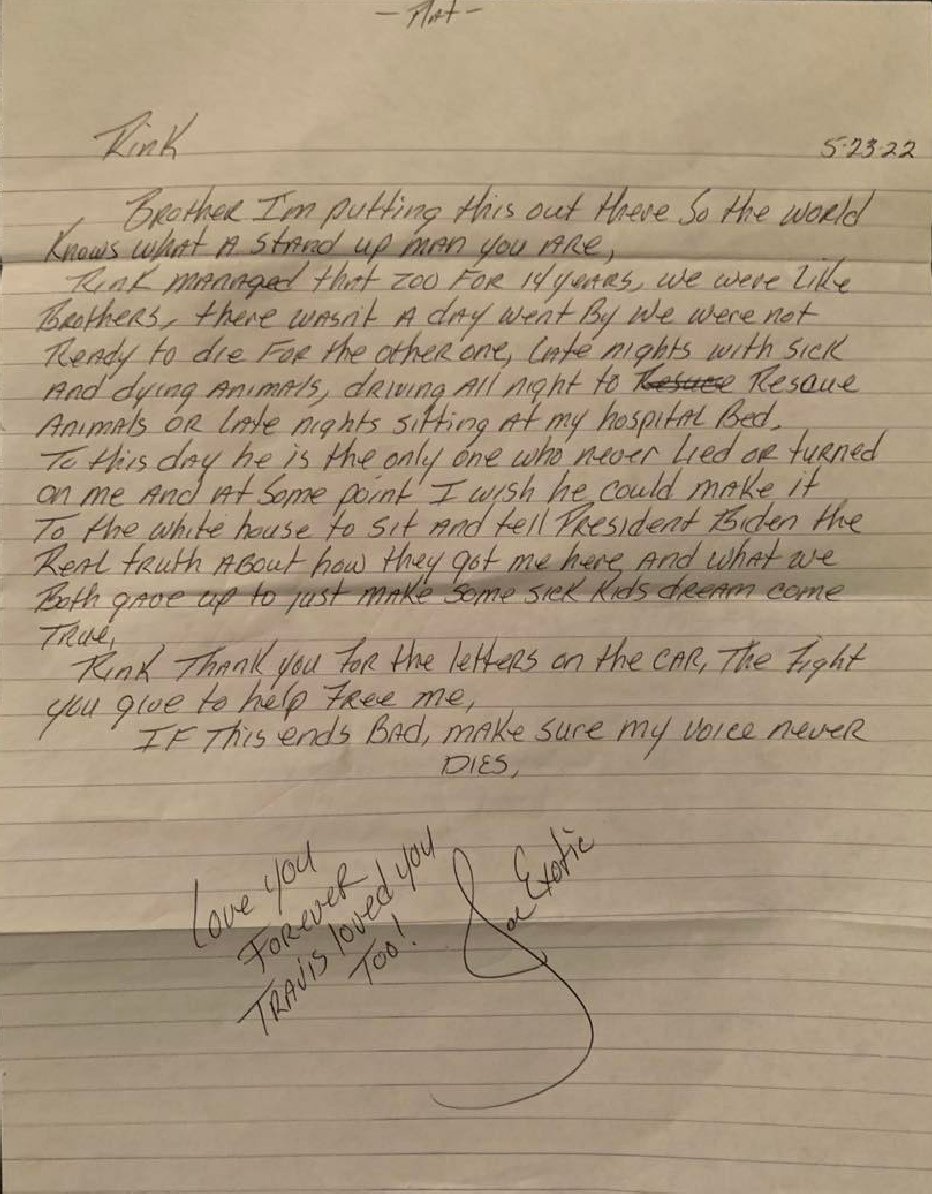 Rink
5-23-22
Brother I'm putting this out there So the world
Knows what A stand up man you are,
Rink managed that zoo For 14 years, we were Like
Brothers, there wasn't A day went By we were not
Ready to die For the other one, late nights with sick
And dying Animals, driving All night to Rescue
Animals OR late nights sitting At my hospital Bed,
To this day he is the only one who never lied or turned
on me And At some point I wish he could make it
To the white house to sit And tell President Biden the
Real truth About how they got me here, And what we
Both gave up to just make some sick kids dream come
True,
Rink Thank you For the letters on the CAR, The Fight
you give to help Free me,
IF This ends Bad, make sure my voice never
DIES,
Love you
Forever
Travis loved you
Too!
Joe Exotic